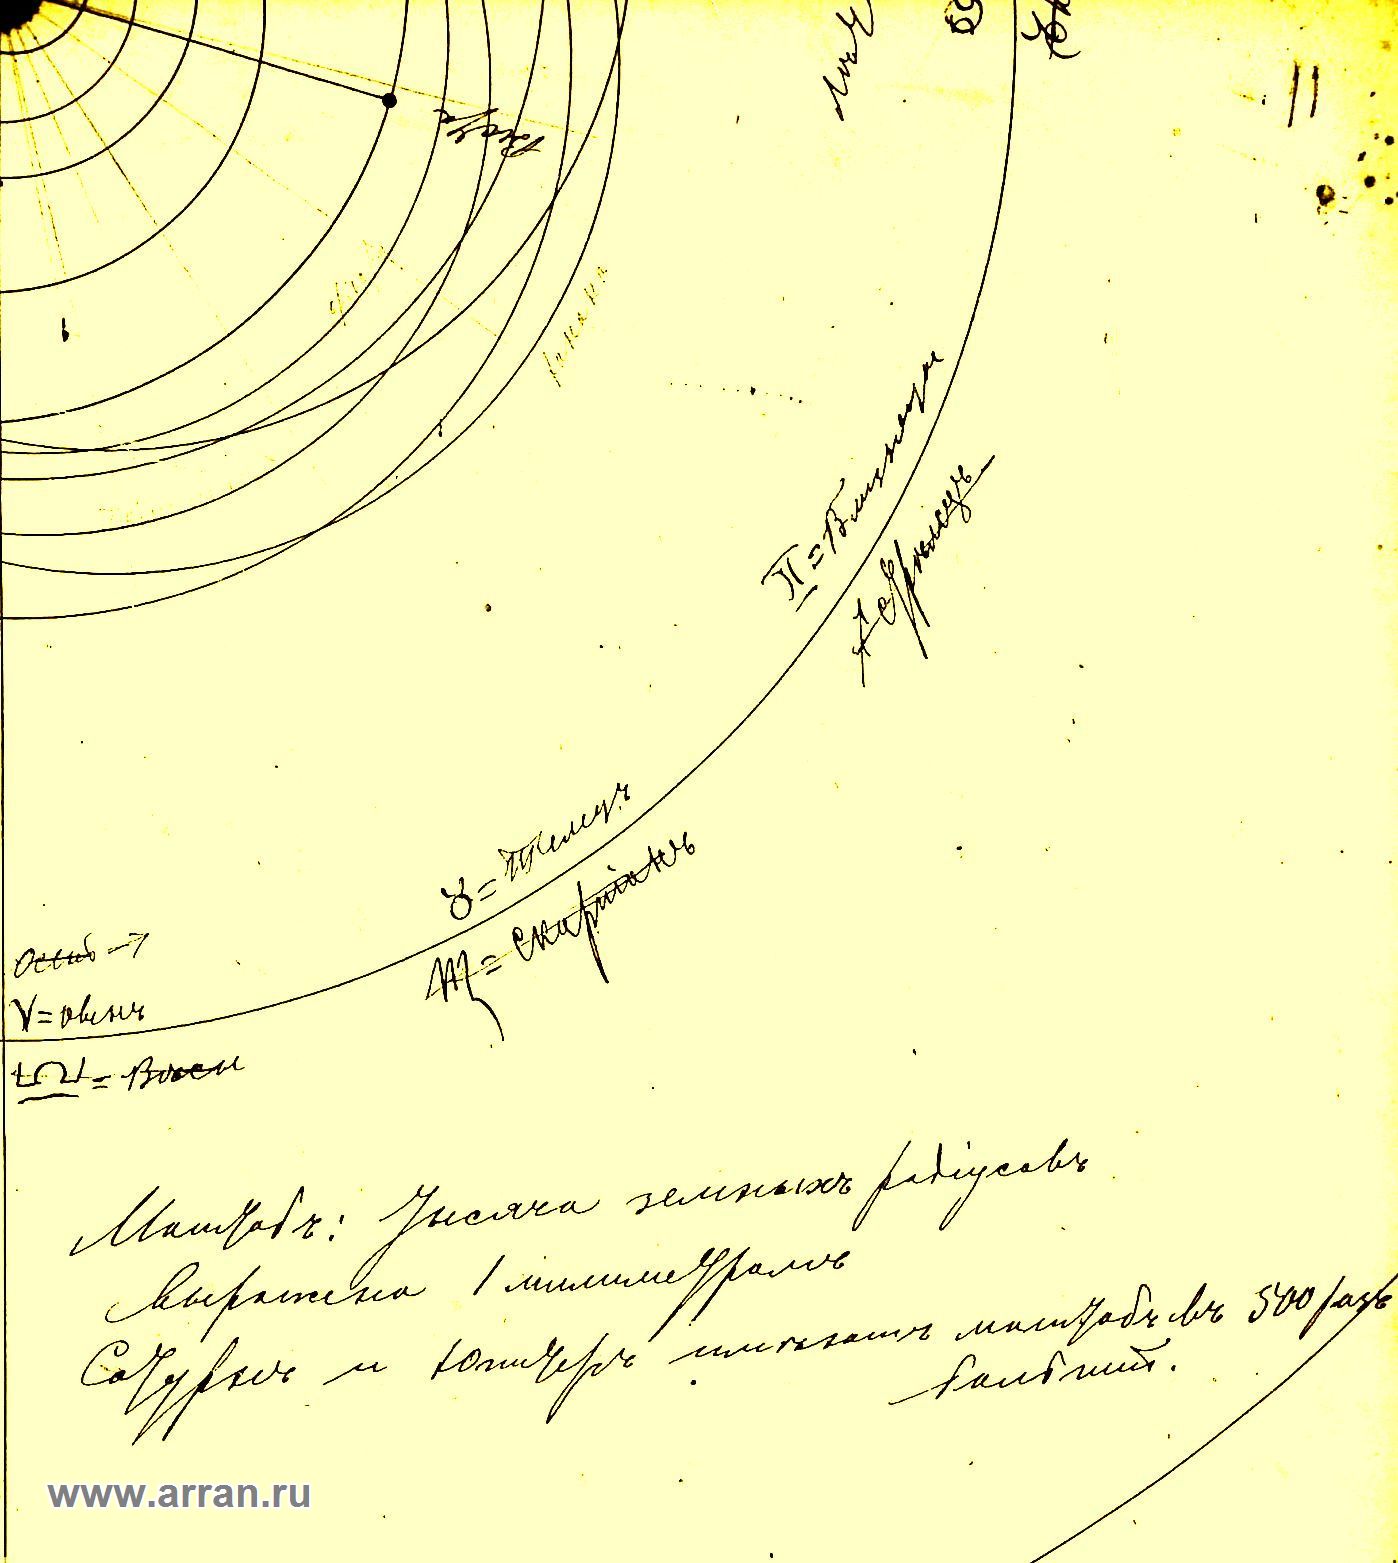 11
II = Близнецы
Стрѣлецъ
♉ = Телецъ
♏ = Скорпіонъ
♈ = овенъ
♎ = Вѣсы
Масштабъ: Тысяча земныхъ радіусовъ
выражена 1 милиметромъ
Сатурнъ и Юпитеръ имеютъ масштабъ въ 500 разъ
большій.
www.arran.ru